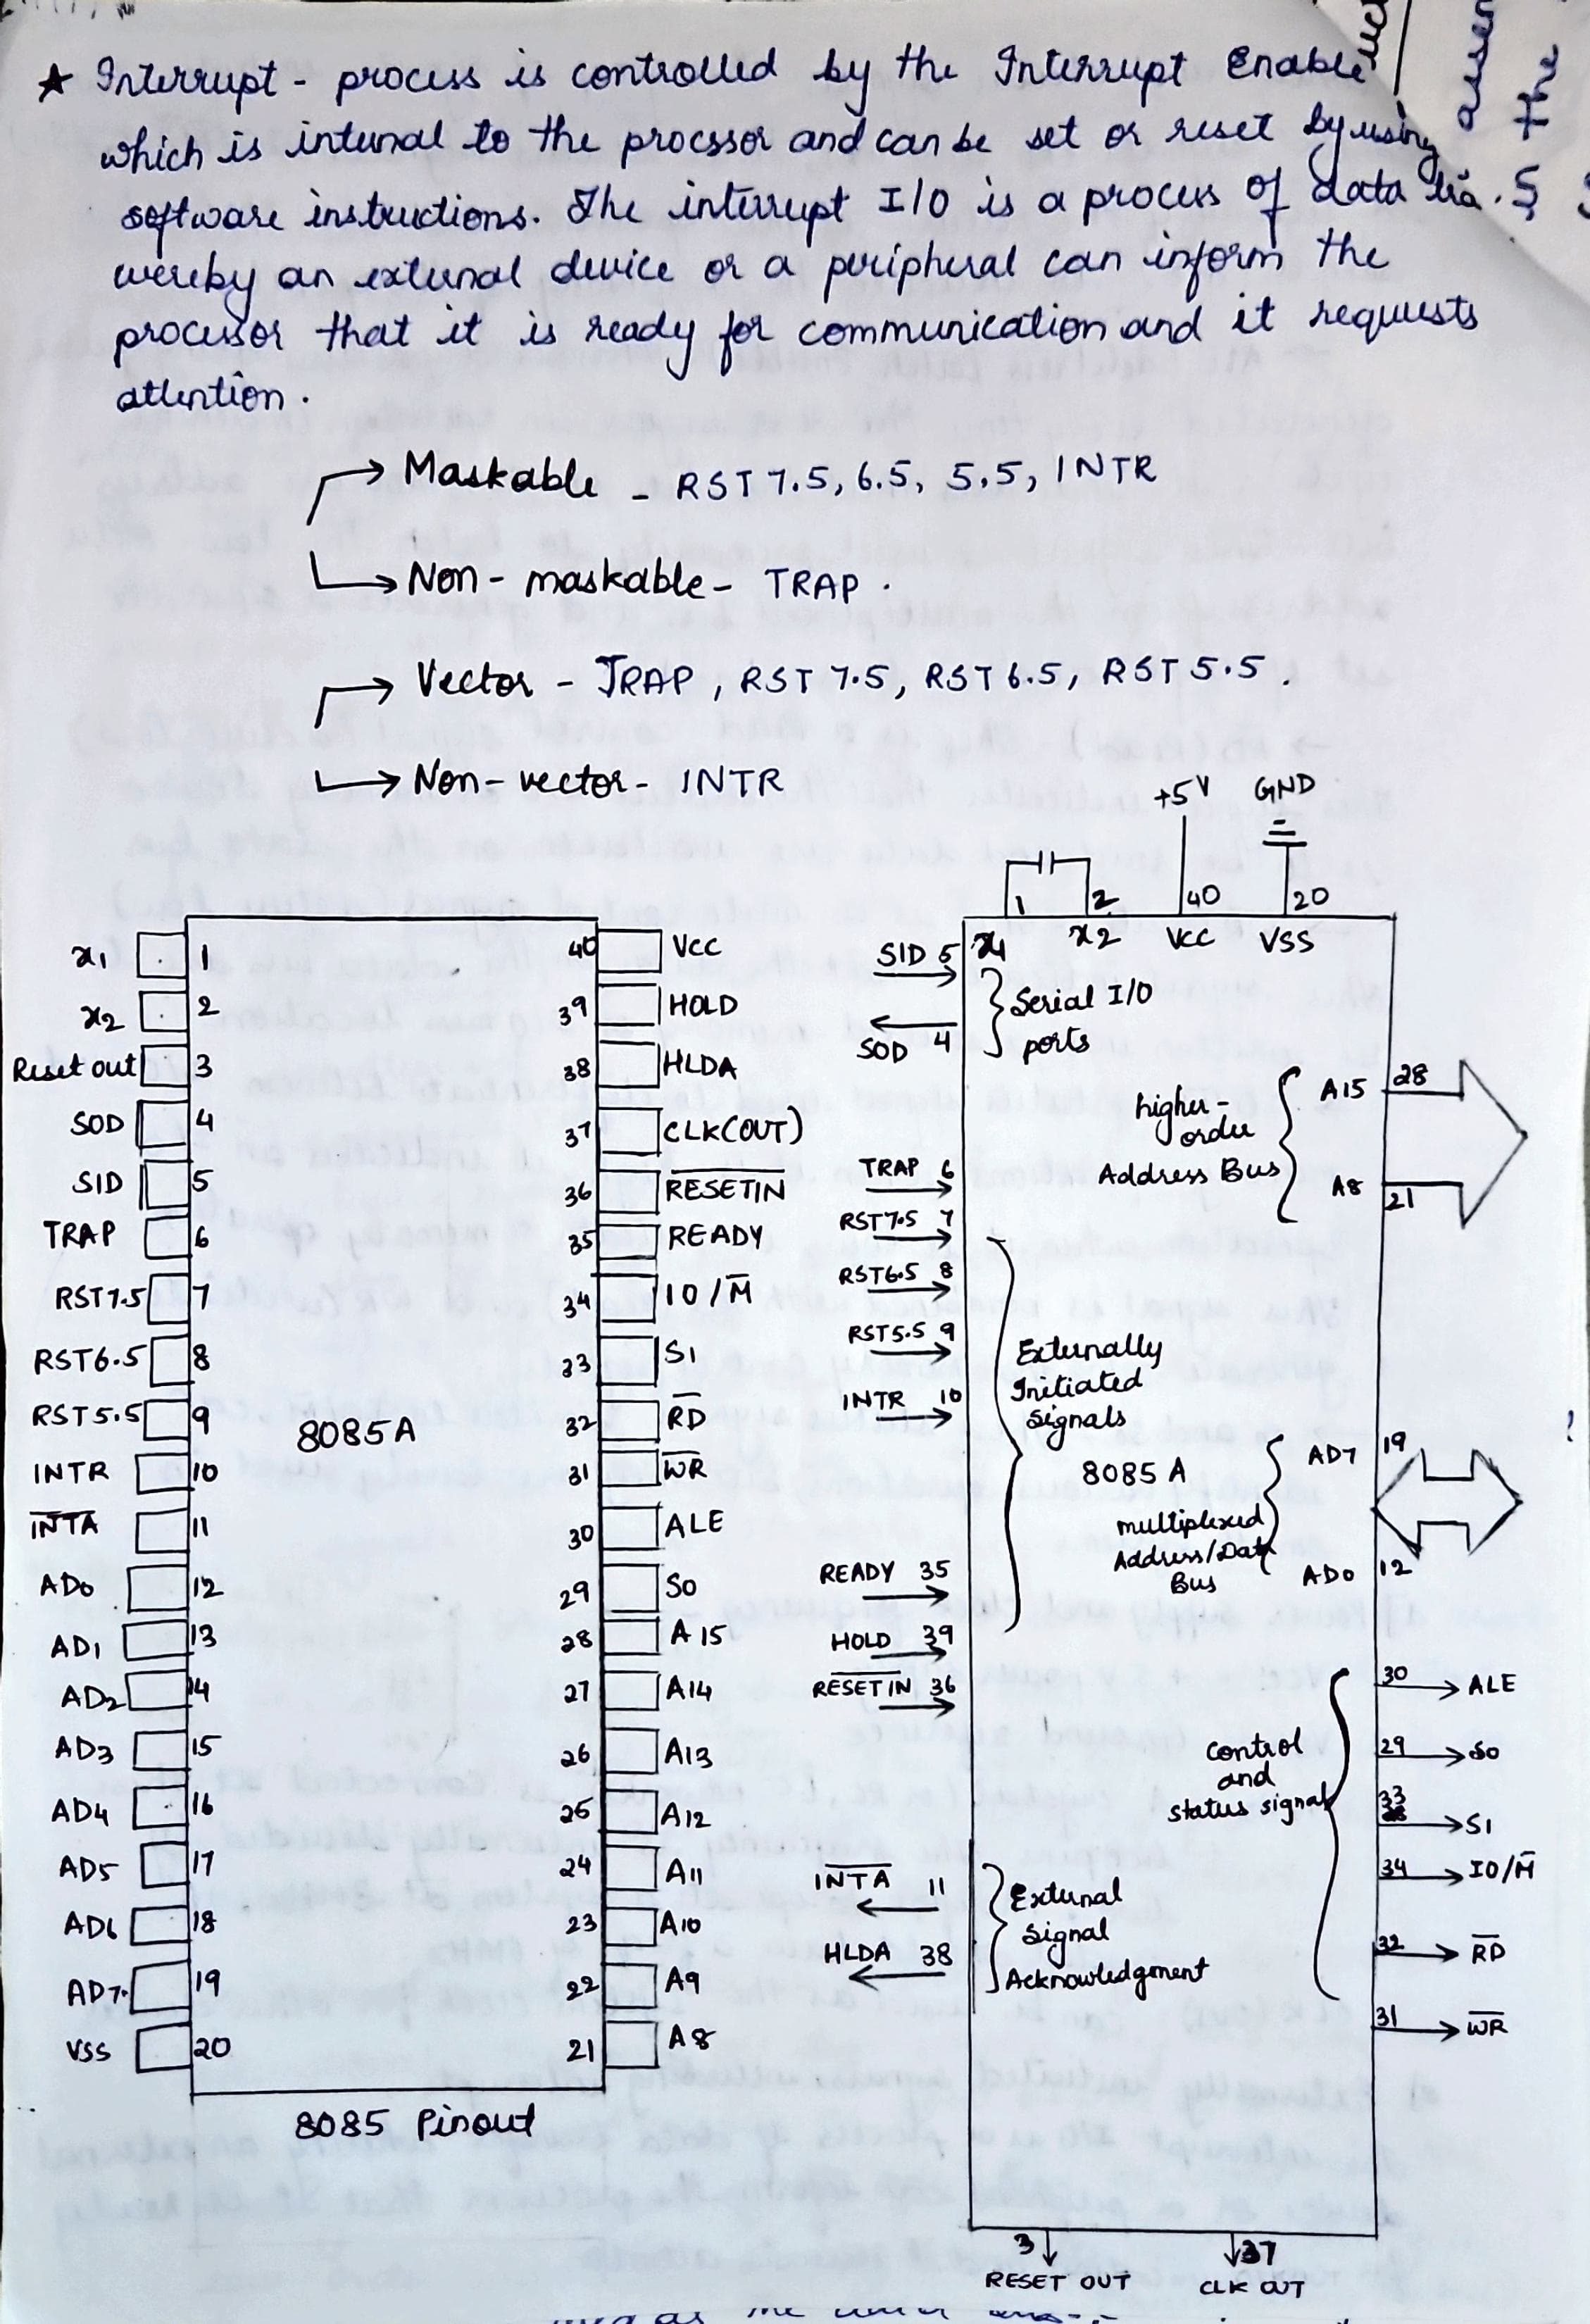 ★ Interrupt - process is controlled by the Interrupt Enable
which is internal to the procssor and can be set or reset by using
software instructions. The interrupt I/O is a process of data
wereby an external device or a peripheral can inform the
processor that it is ready for communication and it requests
attention.
→ Maskable - RST 7.5, 6.5, 5.5, INTR
→ Non-maskable - TRAP.
→ Vector - TRAP, RST 7.5, RST 6.5, RST 5.5.
→ Non-vector - INTR
x1 1
x2 2
Reset out 3
SOD 4
SID 5
TRAP 6
RST7.5 7
RST6.5 8
RST5.5 9
INTR 10
I̅N̅T̅A̅ 11
AD0 12
AD1 13
AD2 14
AD3 15
AD4 16
AD5 17
AD6 18
AD7 19
VSS 20
8085A
40 VCC
39 HOLD
38 HLDA
37 CLK(OUT)
36 R̅E̅S̅E̅T̅I̅N̅
35 READY
34 IO/M̅
33 S1
32 R̅D̅
31 W̅R̅
30 ALE
29 S0
28 A15
27 A14
26 A13
25 A12
24 A11
23 A10
22 A9
21 A8
8085 Pinout
+5V GND
1 2 40 20
x1 x2 VCC VSS
SID 5
SOD 4
Serial I/O
ports
TRAP 6
RST7.5 7
RST6.5 8
RST5.5 9
INTR 10
READY 35
HOLD 39
R̅E̅S̅E̅T̅ I̅N̅ 36
Externally
Initiated
signals
8085 A
I̅N̅T̅A̅ 11
HLDA 38
External
Signal
Acknowledgment
higher-
order
Address Bus
A15 28
A8 21
multiplexed
Address/Data
Bus
AD7 19
AD0 12
control
and
status signal
30 → ALE
29 → S0
33 → S1
34 → IO/M̅
32 → R̅D̅
31 → W̅R̅
3 ↓ ↓ 37
RESET OUT CLK OUT